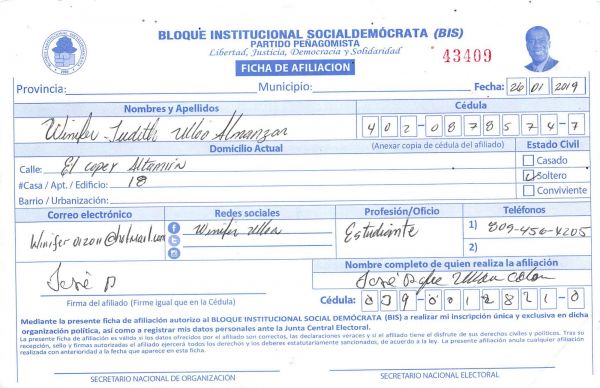 BLOQUE INSTITUCIONAL SOCIALDEMÓCRATA (BIS)
PARTIDO PEÑAGOMISTA
Libertad, Justicia, Democracia y Solidaridad
43409
FICHA DE AFILIACION
Provincia:
Municipio:
Fecha: 26 01 2019
Nombres y Apellidos
Cédula
Winifer Judith Ulloa Almanzar
402-0878574-7
Domicilio Actual
(Anexar copia de cédula del afiliado)
Estado Civil
Calle: El copey Altamira
Casado
#Casa / Apt. / Edificio: 18
Soltero
Barrio / Urbanización:
Conviviente
Correo electrónico
Redes sociales
Profesión/Oficio
Teléfonos
Winifer012011@hotmail.com
Winifer Ulloa
Estudiante
1) 809-456-4205
2)
Nombre completo de quien realiza la afiliación
José
José Ulloa Colon
Firma del afiliado (Firme igual que en la Cédula)
Cédula: 039-0012821-0
Mediante la presente ficha de afiliación autorizo al BLOQUE INSTITUCIONAL SOCIAL DEMÓCRATA (BIS) a realizar mi inscripción única y exclusiva en dicha
organización política, así como a registrar mis datos personales ante la Junta Central Electoral.
La presente ficha de afiliación es válida si los datos ofrecidos por el afiliado son correctos, las declaraciones veraces y si el afiliado tiene el disfrute de sus derechos civiles y políticos. Tras su
recepción, sello y firmas autorizadas el afiliado ejercerá todos los derechos y los deberes estatutariamente sancionados, de acuerdo a la ley. La presente afiliación anula cualquier afiliación
realizada con anterioridad a la fecha que aparece en esta ficha.
SECRETARIO NACIONAL DE ORGANIZACION
SECRETARIO NACIONAL ELECTORAL